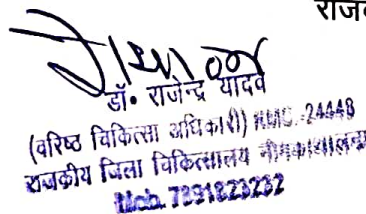 राज
डॉ. राजेन्द्र यादव
(वरिष्ठ चिकित्सा अधिकारी) RMC.-24448
राजकीय जिला चिकित्सालय
Mob. 7891823232